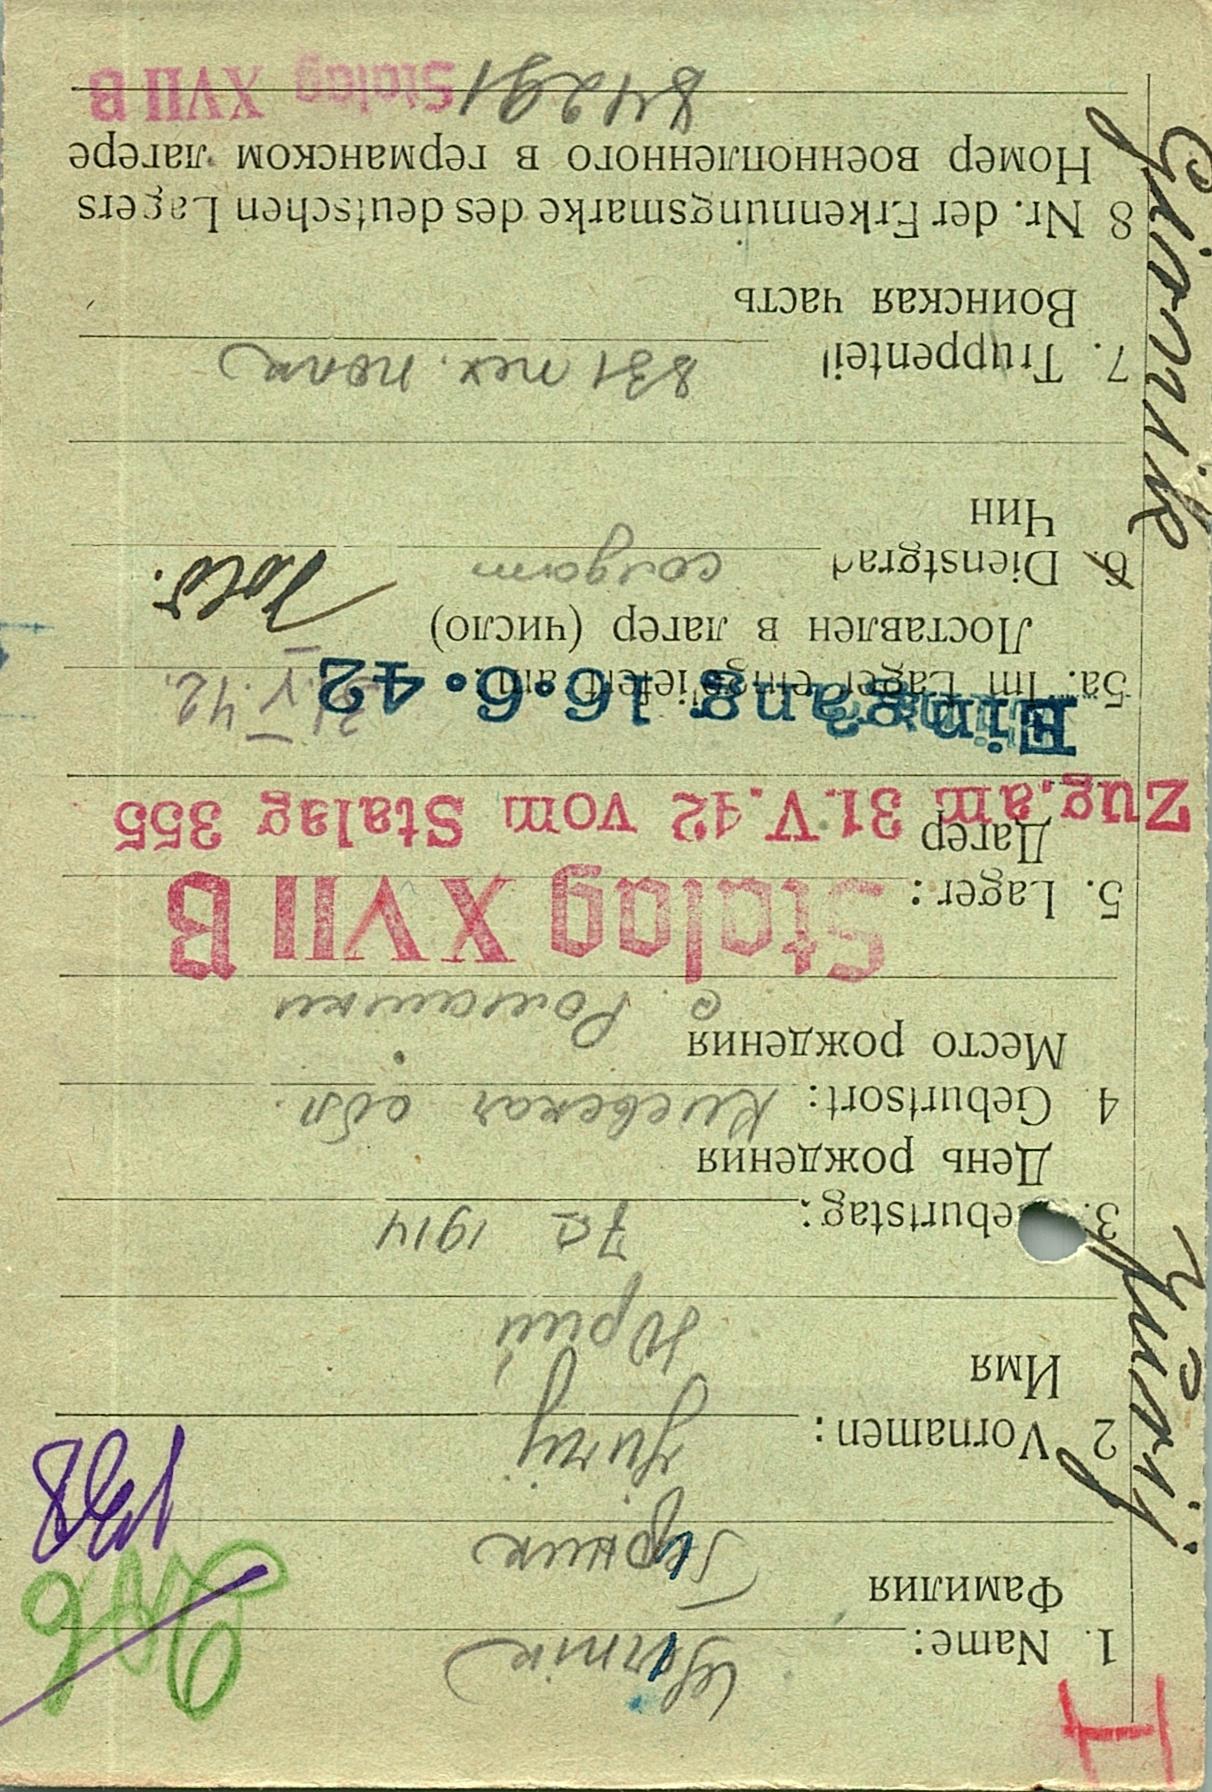 H
1. Name: Giornik
Фамилия Гирник
2 Vornamen: Jurij
Имя Юрий
3. Geburtstag: 7а 1914
День рождения
4 Geburtsort: Киевская обл.
Место рождения
с. Ромашки
Stalag XVII B
5. Lager:
Лагер
Zug. am 31. V. 42 vom Stalag 355
Eingang 16.6.42
5a. Im Lager eingeliefert am: 31. V. 42.
Поставлен в лагер (число)
6. Dienstgrad солдат
Чин
7. Truppenteil 831 пех. полк
Воинская часть
8 Nr. der Erkennungsmarke des deutschen Lagers
Номер военнопленного в германском лагере
84291 Stalag XVII B
Jurij Giornik